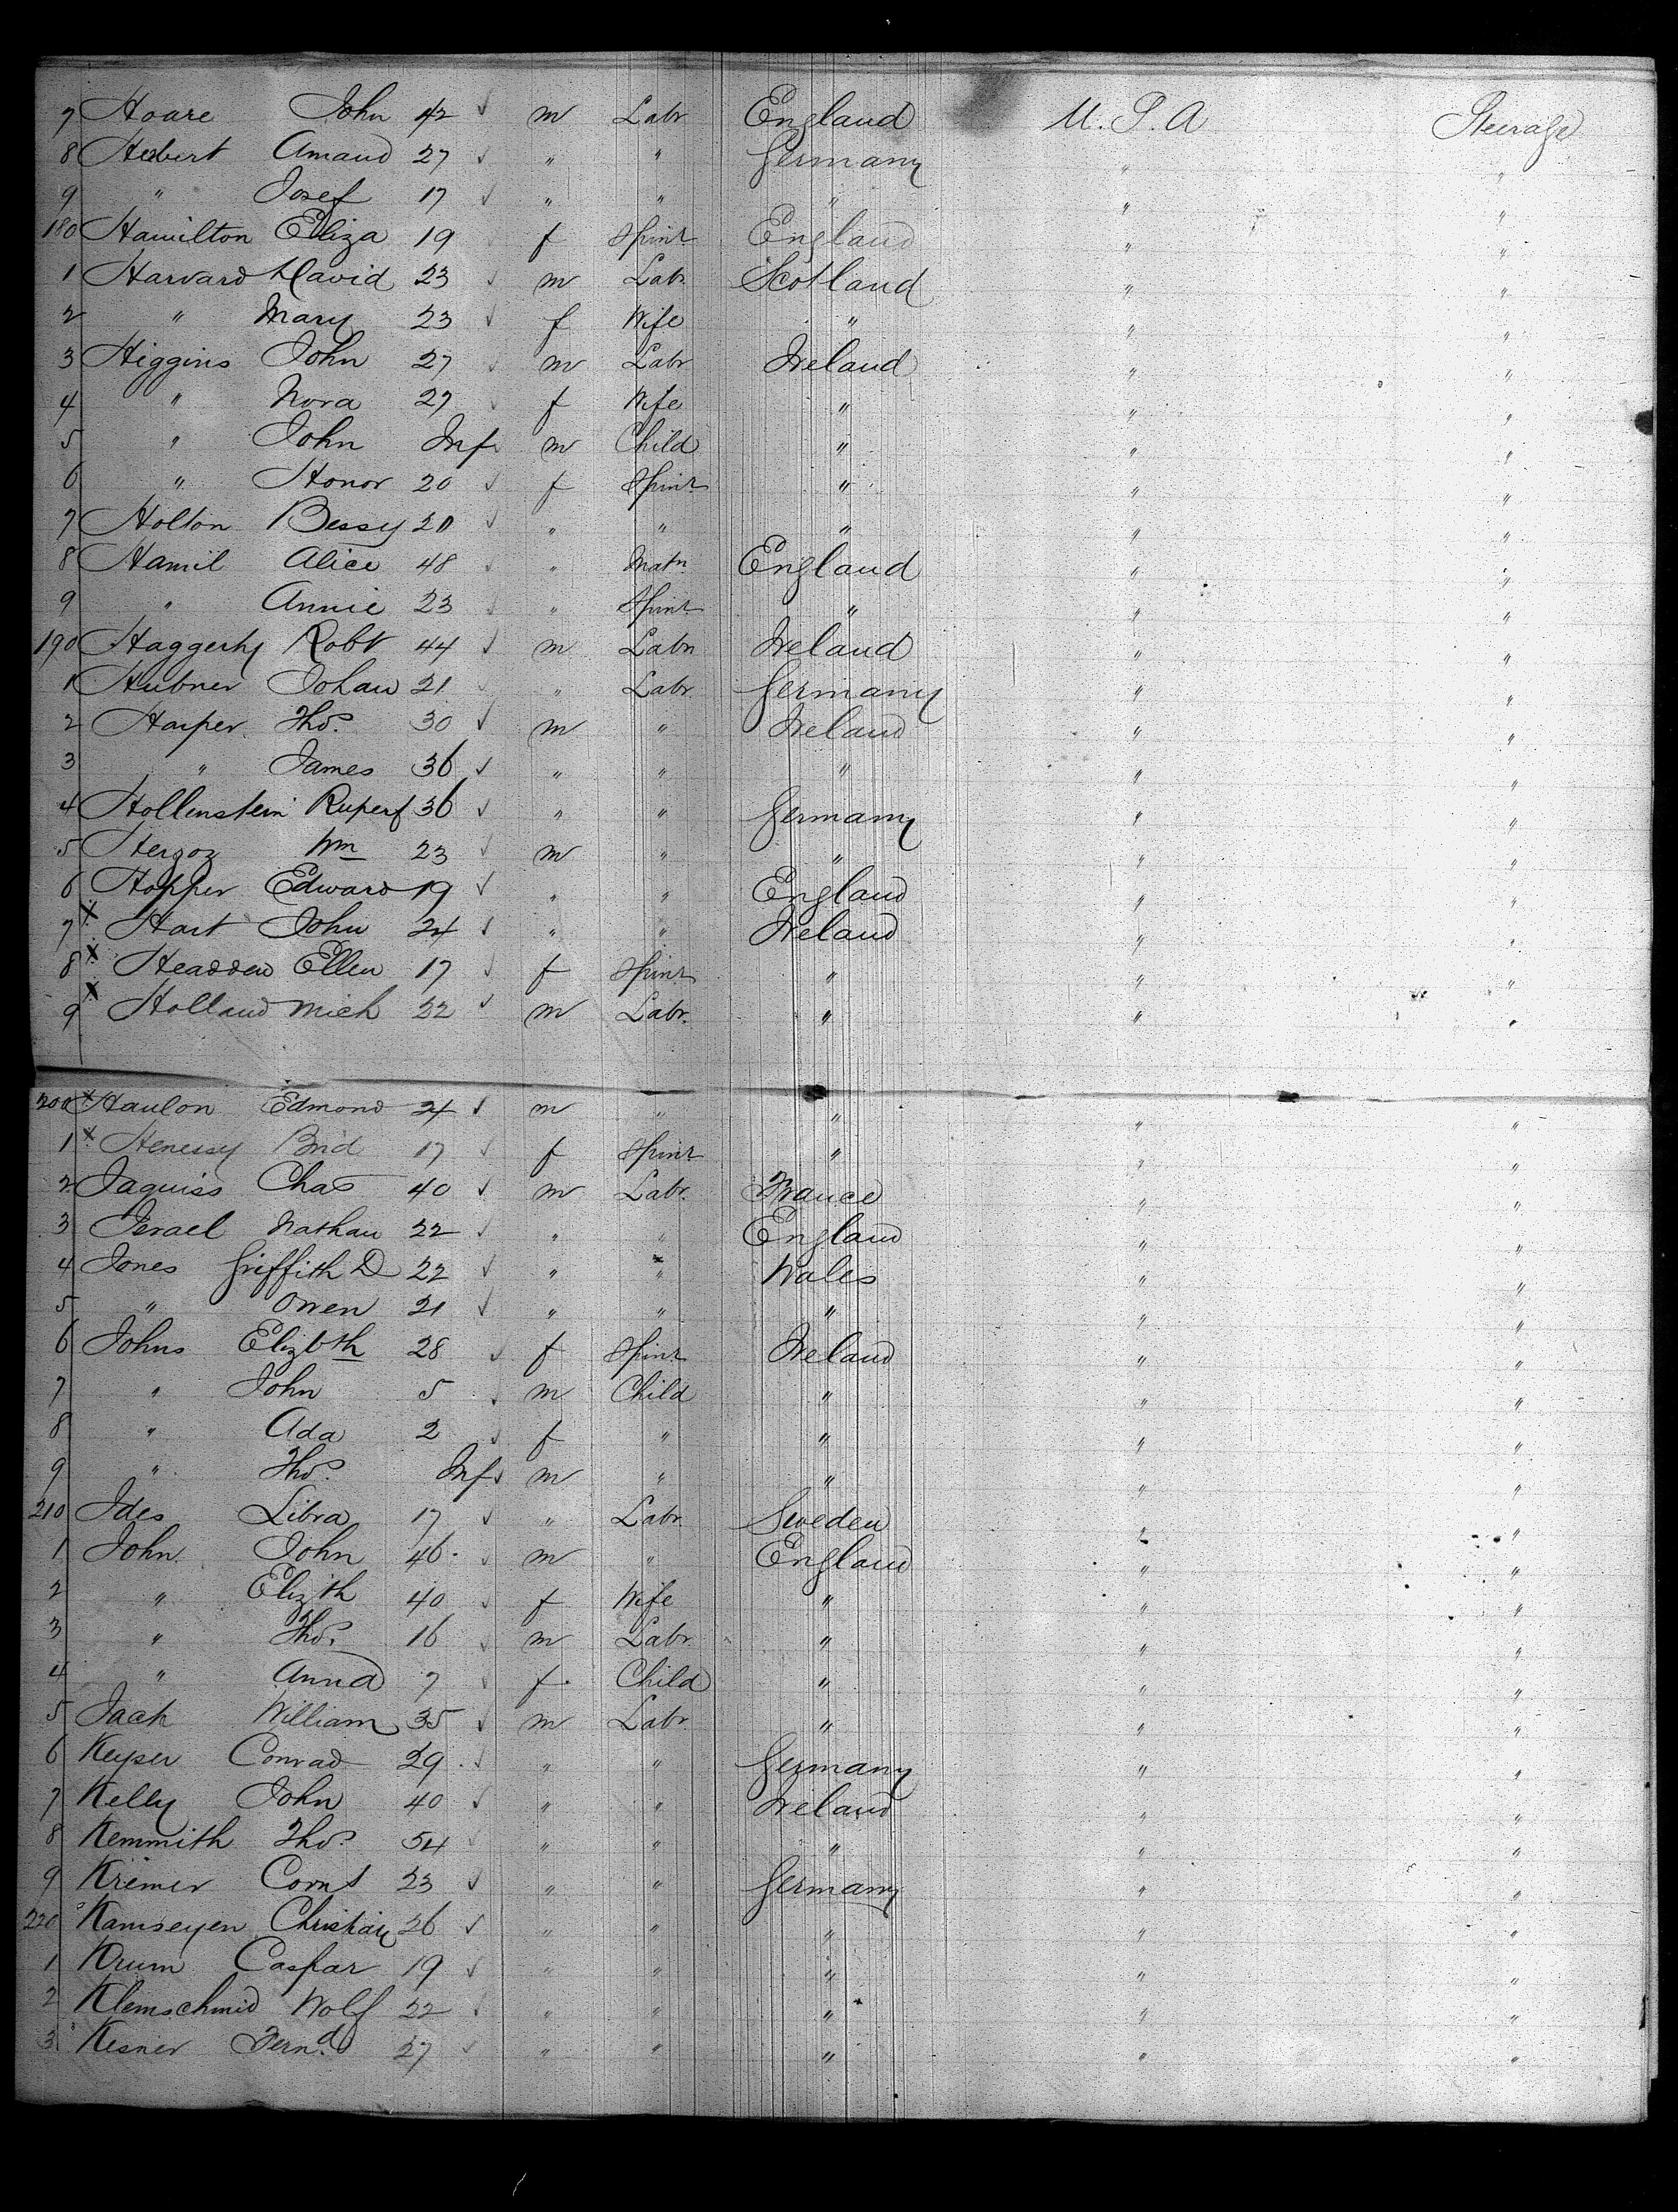 7 Hoare John 42 ✓ m Labr England U.S.A Steerage
8 Herbert Amand 27 ✓ " " Germany " "
9 " Josef 17 ✓ " " " " "
180 Hamilton Eliza 19 ✓ f Spinr England " "
1 Harvard David 23 ✓ m Labr Scotland " "
2 " Mary 23 ✓ f Wife " " "
3 Higgins John 27 ✓ m Labr Ireland " "
4 " Nora 27 ✓ f Wife " " "
5 " John Inf m Child " " "
6 " Honor 20 ✓ f Spinr " " "
7 Holton Bessy 20 ✓ " " " " "
8 Hamil Alice 48 ✓ " Matn England " "
9 " Annie 23 ✓ " Spinr " " "
190 Haggerty Robt 44 ✓ m Labr Ireland " "
1 Hubner Johan 21 ✓ " Labr Germany " "
2 Harper Thos. 30 ✓ m " Ireland " "
3 " James 36 ✓ " " " " "
4 Hollenstein Rupert 36 ✓ " " Germany " "
5 Herzoz Wm 23 ✓ m " " " "
6 Hopper Edward 19 ✓ " " England " "
7 x Hart John 24 ✓ " " Ireland " "
8 x Headden Ellen 17 ✓ f Spinr " " "
9 x Holland Mich 22 ✓ m Labr. " " "
200 x Hanlon Edmond 24 ✓ m " " " "
1 x Henessy Brid 17 ✓ f Spinr " " "
2 Jaquiss Chas 40 ✓ m Labr. France " "
3 Israel Nathan 22 ✓ " " England " "
4 Jones Griffith D 22 ✓ " " Wales " "
5 " Owen 21 ✓ " " " " "
6 Johns Elizbth 28 ✓ f Spinr Ireland " "
7 " John 5 ✓ m Child " " "
8 " Ada 2 ✓ f " " " "
9 " Thos. Inf ✓ m " " " "
210 Ides Libra 17 ✓ " Labr. Sweden " "
1 John John 46 ✓ m " England " "
2 " Elizth 40 ✓ f Wife " " "
3 " Thos. 16 ✓ m Labr. " " "
4 " Anna 7 ✓ f. Child " " "
5 Jack William 35 ✓ m Labr " " "
6 Keyser Conrad 29 ✓ " " Germany " "
7 Kelly John 40 ✓ " " Ireland " "
8 Kemmith Thos. 54 ✓ " " " " "
9 Kremer Corns 23 ✓ " " Germany " "
220 Kamseyen Christian 26 ✓ " " " " "
1 Krum Caspar 19 ✓ " " " " "
2 Klemschmid Wolf 22 ✓ " " " " "
3 Kesner Fernd. 27 ✓ " " " " "